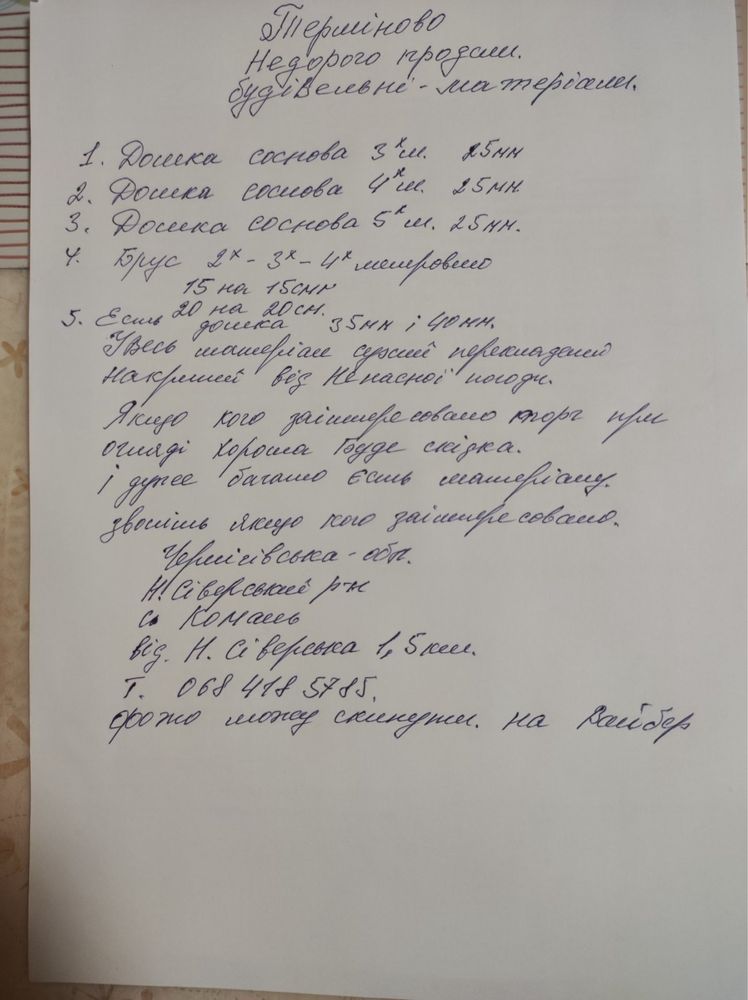 Терміново
Недорого продам.
будівельні - матеріали.
1. Дошка соснова 3х м. 25мм
2. Дошка соснова 4х м. 25мм
3. Дошка соснова 5х м. 25мм.
4. Брус 2х - 3х - 4х метровий
15 на 15см
20 на 20см.
5. Єсть дошка 35мм і 40мм.
Увесь матеріал сухий перекладений
накритий від непасної погоди.
Якщо кого заінтересовано торг при
огляді хороша буде скізка.
і дуже багато єсть матеріалу.
звоніть якщо кого заінтересовано.
Чернігівська - обл.
Н. Сіверський р-н
с. Комань
від. Н. Сіверська 1,5 км.
Т. 068 418 5785.
фото можу скинути. на Вайбер